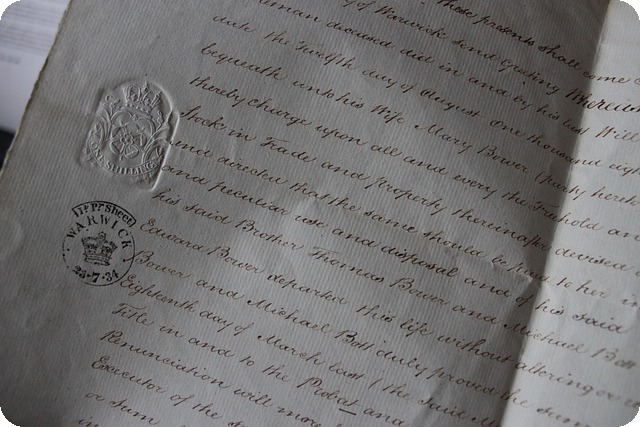 of Warwick send Greeting Whereas
deceased did in and by his last Will
date the Twelfth day of August One thousand eigh
bequeath unto his Wife Mary Bower (party here
thereby charge upon all and every the Freehold an
Stock in Trade and property thereinafter devised
and directed that the same should be paid to her
and peculiar use and disposal and of his said
his said Brother Thomas Bower and Michael Bott
Edward Bower departed this life without altering or
Bower and Michael Bott duly proved the same
Eighteenth day of March last (the said M
Title in and to the Probat and
Renunciation will more
Executor of the s
or sum
in
ONE SHILLING
Pr Sheet
WARWICK
23·7·34